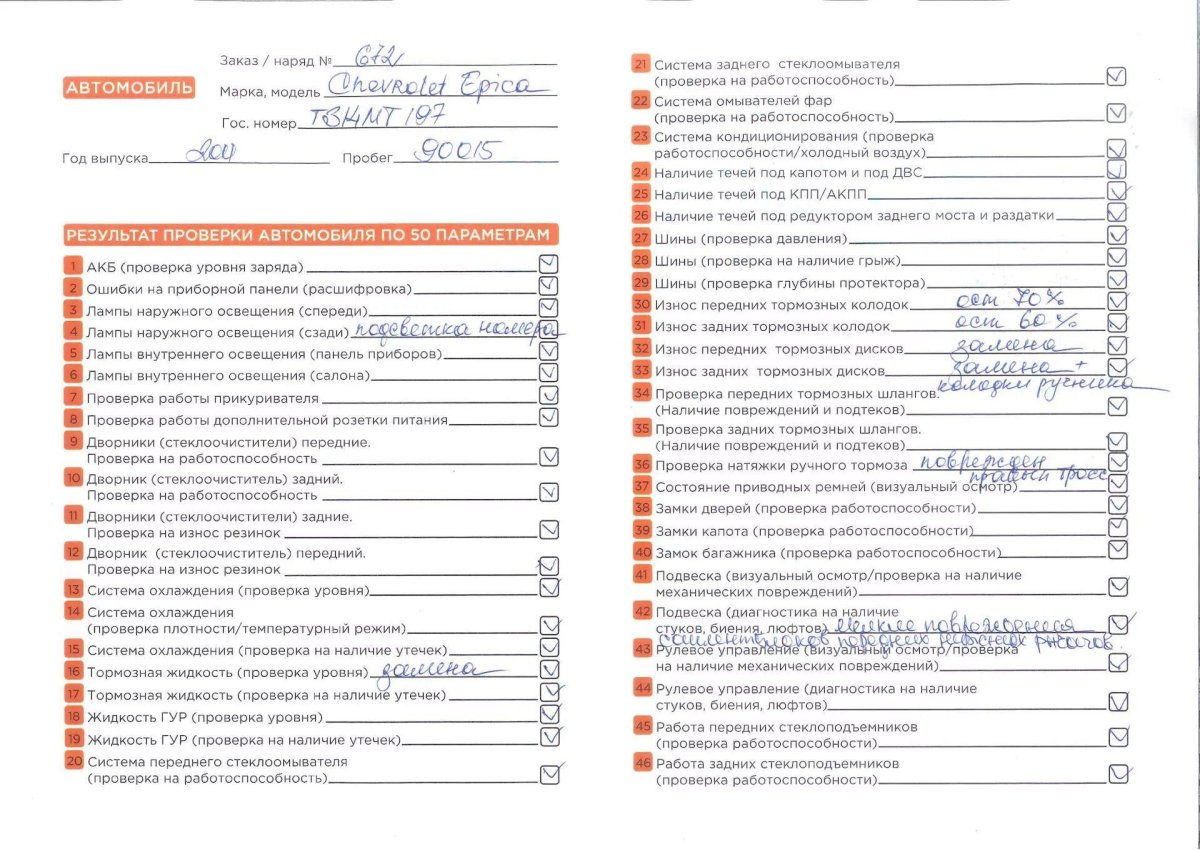 Заказ / наряд № 672
АВТОМОБИЛЬ
Марка, модель Chevrolet Epica
Гос. номер 197
Год выпуска 2011 Пробег 90015
РЕЗУЛЬТАТ ПРОВЕРКИ АВТОМОБИЛЯ ПО 50 ПАРАМЕТРАМ
1 АКБ (проверка уровня заряда)
2 Ошибки на приборной панели (расшифровка)
3 Лампы наружного освещения (спереди)
4 Лампы наружного освещения (сзади) подсветка номера
5 Лампы внутреннего освещения (панель приборов)
6 Лампы внутреннего освещения (салона)
7 Проверка работы прикуривателя
8 Проверка работы дополнительной розетки питания
9 Дворники (стеклоочистители) передние.
Проверка на работоспособность
10 Дворник (стеклоочиститель) задний.
Проверка на работоспособность
11 Дворники (стеклоочистители) задние.
Проверка на износ резинок
12 Дворник (стеклоочиститель) передний.
Проверка на износ резинок
13 Система охлаждения (проверка уровня)
14 Система охлаждения
(проверка плотности/температурный режим)
15 Система охлаждения (проверка на наличие утечек)
16 Тормозная жидкость (проверка уровня) замена
17 Тормозная жидкость (проверка на наличие утечек)
18 Жидкость ГУР (проверка уровня)
19 Жидкость ГУР (проверка на наличие утечек)
20 Система переднего стеклоомывателя
(проверка на работоспособность)
21 Система заднего стеклоомывателя
(проверка на работоспособность)
22 Система омывателей фар
(проверка на работоспособность)
23 Система кондиционирования (проверка
работоспособности/холодный воздух)
24 Наличие течей под капотом и под ДВС
25 Наличие течей под КПП/АКПП
26 Наличие течей под редуктором заднего моста и раздатки
27 Шины (проверка давления)
28 Шины (проверка на наличие грыж)
29 Шины (проверка глубины протектора)
30 Износ передних тормозных колодок ост 70%
31 Износ задних тормозных колодок ост 60%
32 Износ передних тормозных дисков замена
33 Износ задних тормозных дисков замена +
колодки ручника
34 Проверка передних тормозных шлангов.
(Наличие повреждений и подтеков)
35 Проверка задних тормозных шлангов.
(Наличие повреждений и подтеков)
36 Проверка натяжки ручного тормоза поврежден
правый тросс
37 Состояние приводных ремней (визуальный осмотр)
38 Замки дверей (проверка работоспособности)
39 Замки капота (проверка работоспособности)
40 Замок багажника (проверка работоспособности)
41 Подвеска (визуальный осмотр/проверка на наличие
механических повреждений)
42 Подвеска (диагностика на наличие
стуков, биения, люфтов) мелкие повреждения
сайлентблоков передних нижних рычагов.
43 Рулевое управление (визуальный осмотр/проверка
на наличие механических повреждений)
44 Рулевое управление (диагностика на наличие
стуков, биения, люфтов)
45 Работа передних стеклоподъемников
(проверка работоспособности)
46 Работа задних стеклоподъемников
(проверка работоспособности)